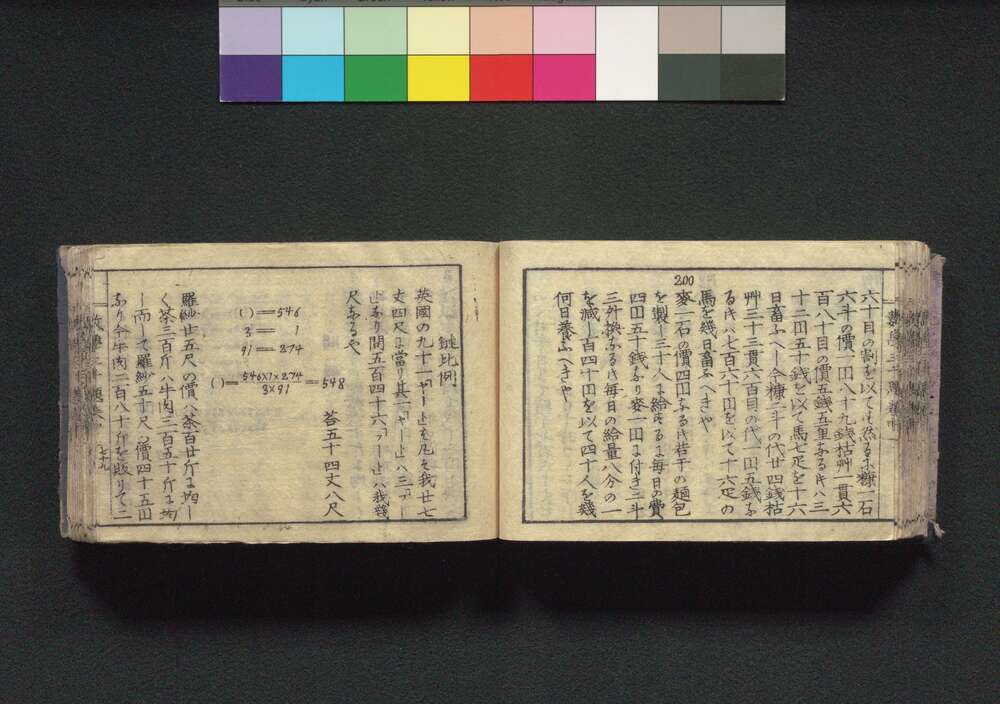 六十目の割を以てす然るに糠一石
六斗の價一田八十九錢枯艸一貫六
百八十目の價五錢五里なるトキハ三
十二田五十錢を以て馬七疋を十六
日畜ふへし今糠二斗の代廿四錢枯
艸三十三貫六百目の代一田五錢な
るトキハ七百六十田を以て十六疋の
馬を幾日畜ふへきや
200
麥一石の價四田なるトキ若干の麺包
を製し三十人に給するに毎日の費
四田五十錢なり麥一田に付き三斗
三升換なるトキ毎日の給量八分の一
を減し百四十田を以て四十人を幾
何日養ふへきや
鏈比例
英國の九十一ヤード止を凡そ我廿七
丈四尺に當り其一ヤード止ハ三フート
止なり問五百四十六フート止ハ我幾
尺なるや
答五十四丈八尺
( ) = 546
3 = 1
91 = 274
( ) = 546×1×274 / 3×91 = 548
羅紗廿五尺の價ハ茶百廿斤に均し
く茶三百斤ハ牛肉二百五十斤に均
し而して羅紗五十尺の價四十五田
なり今牛肉二百八十斤を販りて二
七十九